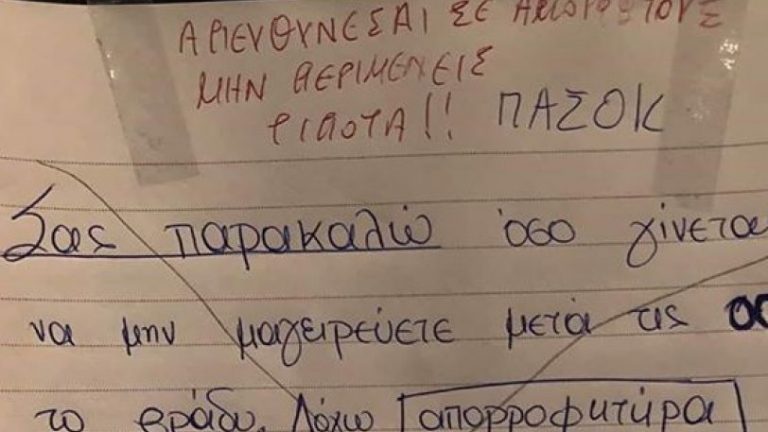 ΑΠΕΥΘΥΝΕΣΑΙ ΣΕ
ΜΗΝ ΠΕΡΙΜΕΝΕΙΣ
ΤΙΠΟΤΑ!! ΠΑΣΟΚ
Σας παρακαλώ όσο γίνεται
να μην μαγειρεύετε μετά τις
το βράδυ. Λόγω απορροφητήρα